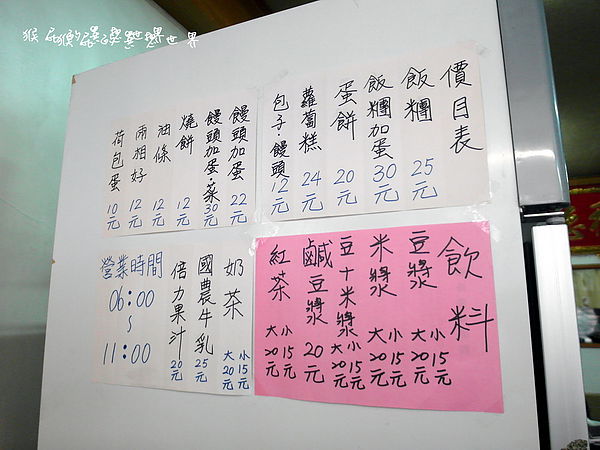 價目表
飯糰 25元
飯糰加蛋 30元
蛋餅 20元
蘿蔔糕 24元
包子·饅頭 12元
饅頭加蛋 22元
饅頭加蛋·菜 30元
燒餅 12元
油條 12元
兩相好 12元
荷包蛋 10元
飲料
豆漿 大20元 小15元
米漿 大20元 小15元
豆十米漿 大20元 小15元
鹹豆漿 20元
紅茶 大20元 小15元
奶茶 大20元 小15元
國農牛乳 25元
倍力果汁 20元
營業時間
06:00
~
11:00